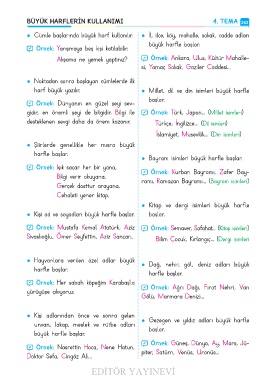 BÜYÜK HARFLERİN KULLANIMI
4. TEMA
Cümle başlarında büyük harf kullanılır.
Örnek: Yarışmaya beş kişi katılabilir.
Akşama ne yemek yaptınız?
Noktadan sonra başlayan cümlelerde ilk
harf büyük yazılır.
Örnek: Dünyanın en güzel şeyi sev-
gidir, en önemli şeyi de bilgidir. Bilgi ile
desteklenen sevgi daha da önem kazanır.
Şiirlerde genellikle her mısra büyük
harfle başlar.
Örnek: Işık saçar her bir yana,
Bilgi verir okuyana,
Gerçek dosttur arayana,
Cehaleti yener kitap.
Kişi ad ve soyadları büyük harfle başlar.
Örnek: Mustafa Kemal Atatürk, Aziz
Sivaslıoğlu, Ömer Seyfettin, Aziz Sancar...
Hayvanlara verilen özel adlar büyük
harfle başlar.
Örnek: Her sabah köpeğim Karabaş'la
yürüyüşe çıkıyoruz.
Kişi adlarından önce ve sonra gelen
unvan, lakap, meslek ve rütbe adları
büyük harfle başlar.
Örnek: Nasreddin Hoca, Nene Hatun,
Doktor Sefa, Cingöz Ali...
İl, ilçe, köy, mahalle, sokak, cadde adları
büyük harfle başlar.
Örnek: Ankara, Ulus, Kültür Mahalle-
si, Yamaç Sokak, Gaziler Caddesi...
Millet, dil ve din isimleri büyük harfle
başlar.
Örnek: Türk, Japon... (Millet isimleri)
Türkçe, İngilizce... (Dil isimleri)
İslamiyet, Musevilik... (Din isimleri)
Bayram isimleri büyük harfle başlar.
Örnek: Kurban Bayramı, Zafer Bay-
ramı, Ramazan Bayramı... (Bayram isimleri)
Kitap ve dergi isimleri büyük harfle
başlar.
Örnek: Semaver, Safahat... (Kitap isimleri)
Bilim Çocuk, Kırlangıç... (Dergi isimleri)
Dağ, nehir, göl, deniz adları büyük
harfle başlar.
Örnek: Ağrı Dağı, Fırat Nehri, Van
Gölü, Marmara Denizi...
Gezegen ve yıldız adları büyük harfle
başlar.
Örnek: Güneş, Dünya, Ay, Mars, Jü-
piter, Satürn, Venüs, Uranüs...
EDİTÖR YAYINEVİ